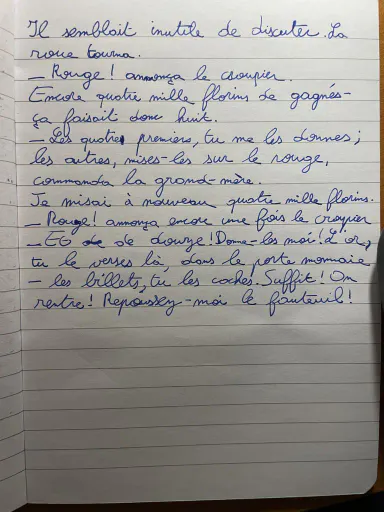 Il semblait inutile de discuter. La
roue tourna.
– Rouge ! annonça le croupier.
Encore quatre mille florins de gagnés –
ça faisait donc huit.
– Les quatre premiers, tu me les donnes ;
les autres, mises-les sur le rouge,
commanda la grand-mère.
Je misai à nouveau quatre mille florins.
– Rouge ! annonça encore une fois le croupier
– Et de de douze ! Donne-les moi ! L'or,
tu le verses là, dans le porte monnaie
– les billets, tu les caches. Suffit ! On
rentre ! Repoussez-moi le fauteuil !